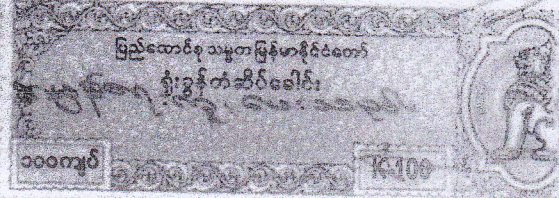 ပြည်ထောင်စုသမ္မတမြန်မာနိုင်ငံတော်
ရုံးခွန်တံဆိပ်ခေါင်း
၁၀၀ကျပ်
K-100